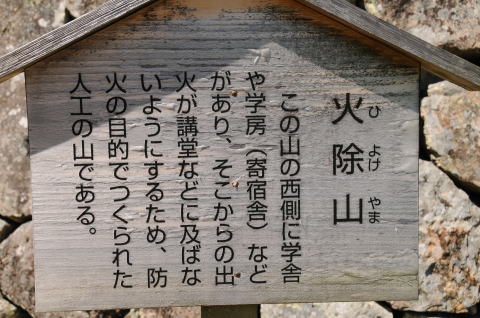 火除山
ひ よけ やま
この山の西側に学舎
や学房（寄宿舎）など
があり、そこからの出
火が講堂などに及ばな
いようにするため、防
火の目的でつくられた
人工の山である。